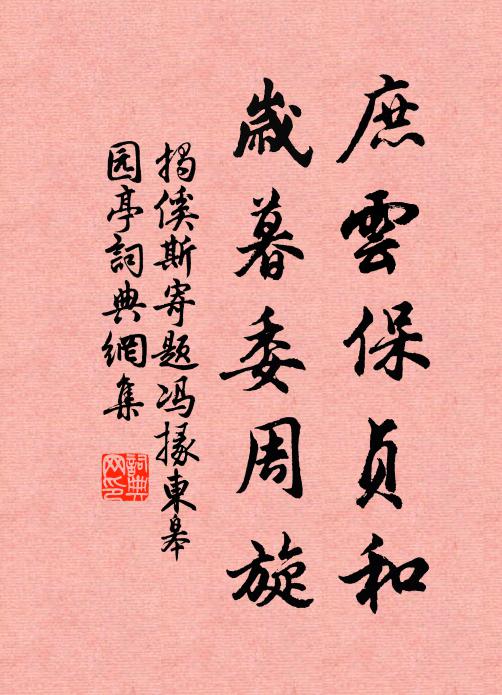 庶雲保貞和
歲暮委周旋
揭傒斯寄题冯掾東皋
园亭詞典網集
詞典网印